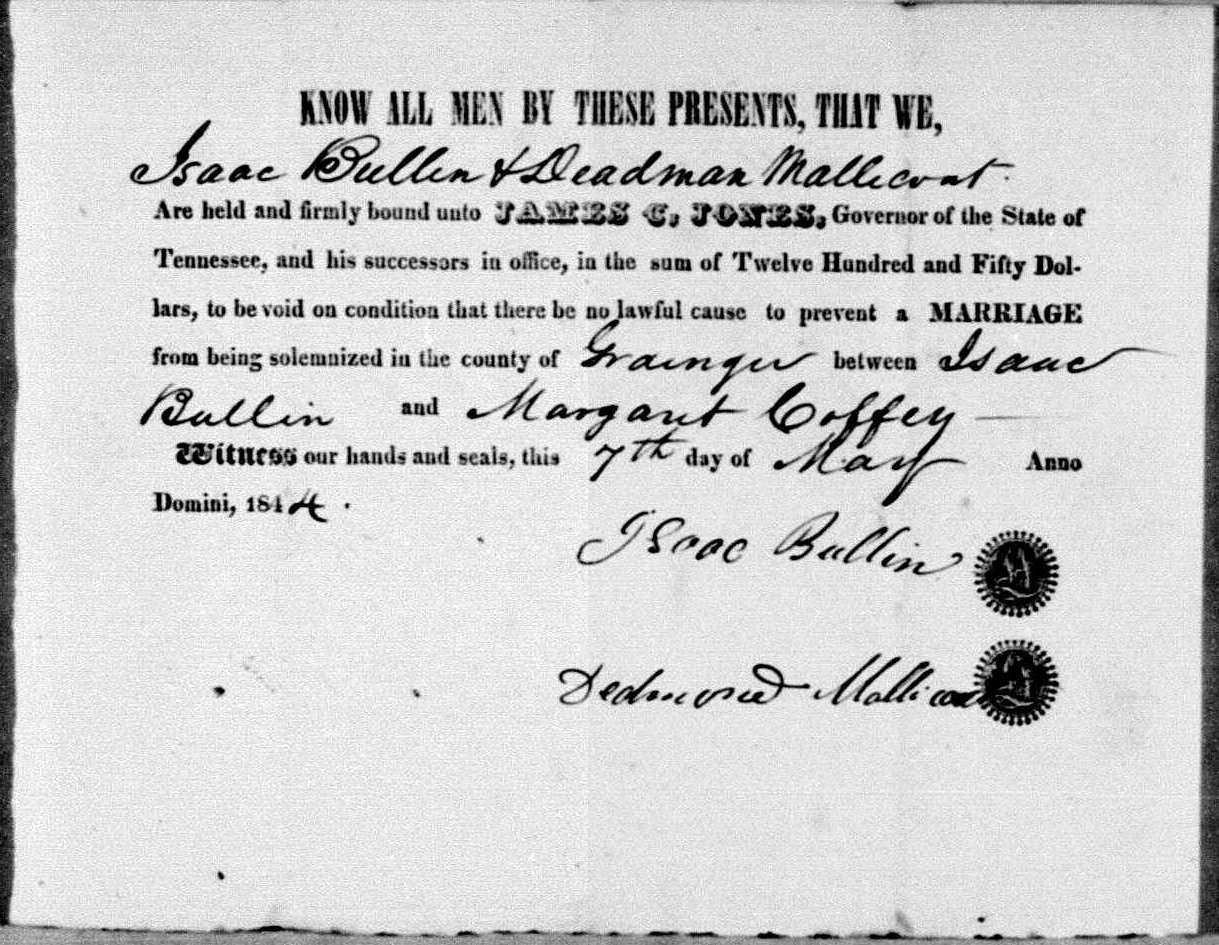 KNOW ALL MEN BY THESE PRESENTS, THAT WE,
Isaac Bullen & Deadman Mallicoat
Are held and firmly bound unto JAMES C. JONES, Governor of the State of
Tennessee, and his successors in office, in the sum of Twelve Hundred and Fifty Dol-
lars, to be void on condition that there be no lawful cause to prevent a MARRIAGE
from being solemnized in the county of Grainger between Isaac
Bullin and Margaret Coffey
Witness our hands and seals, this 7th day of May Anno
Domini, 1844.
Isaac Bullin
Mallicoat